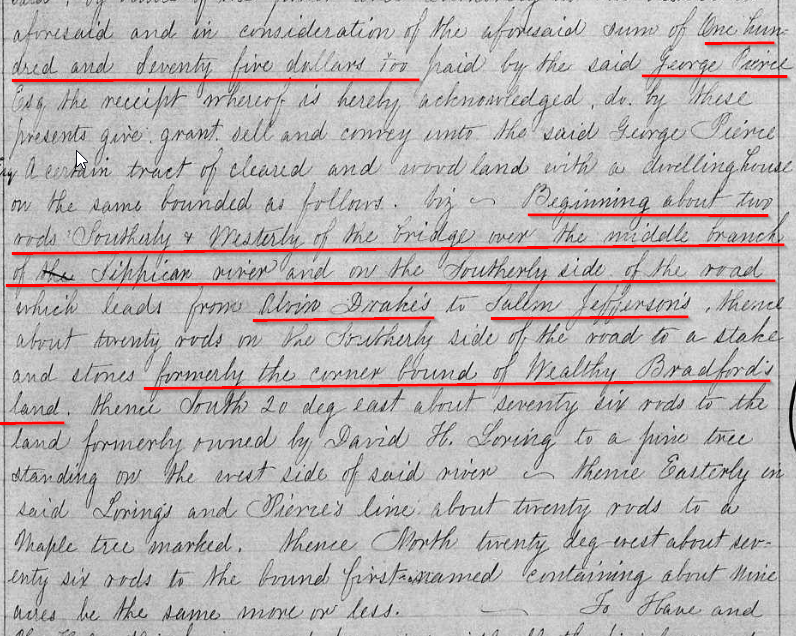 aforesaid and in consideration of the aforesaid sum of One hun-
dred and Seventy five dollars too paid by the said George Pierce
Esq the receipt whereof is hereby acknowledged, do. by these
presents give. grant. sell and convey unto the said George Pierce
Esq A certain tract of cleared and wood land with a dwellinghouse
on the same bounded as follows. viz Beginning about two
rods Southerly & Westerly of the bridge over the middle branch
of the Sippican river and on the Southerly side of the road
which leads from Alvin Drake's to Salem Jefferson's, thence
about twenty rods on the Southerly side of the road to a stake
and stones formerly the corner bound of Wealthy Bradford's
land. thence South 20 deg east about seventy six rods to the
land formerly owned by David H. Loring to a pine tree
standing on the west side of said river thence Easterly in
said Loring's and Pierce's line about twenty rods to a
Maple tree marked. thence North twenty deg west about sev-
enty six rods to the bound first named containing about Nine
acres be the same more or less. To Have and